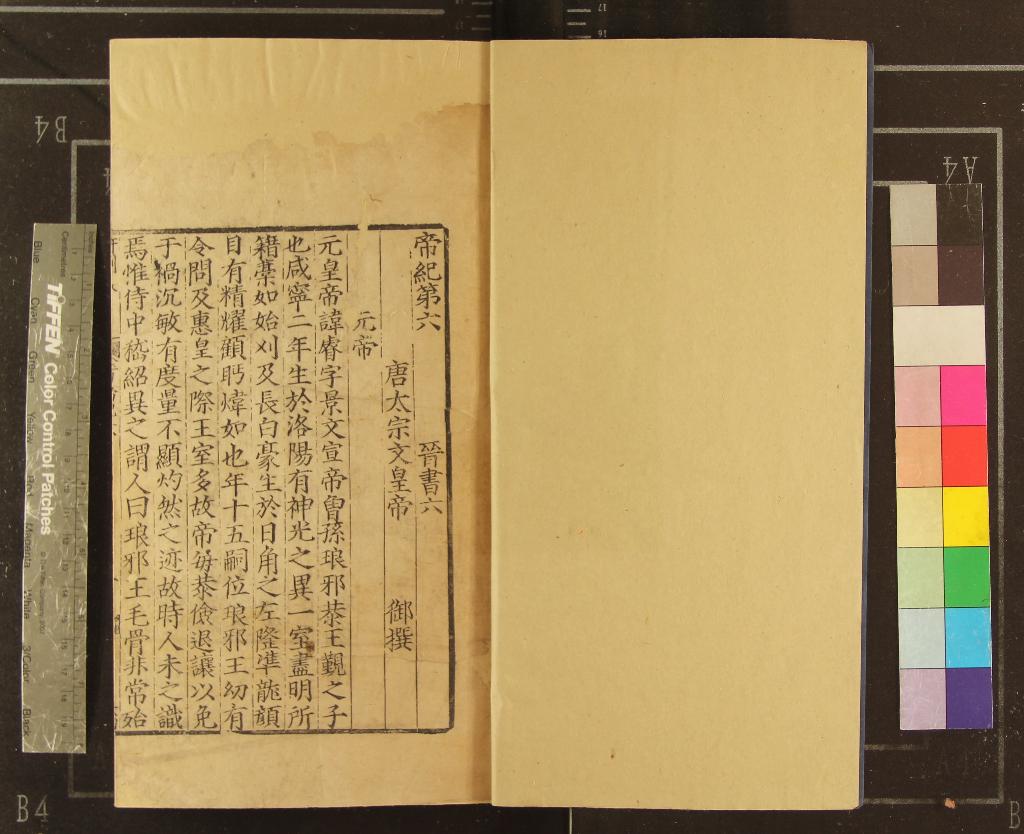 帝紀第六　晉書六
唐太宗文皇帝　御撰
元帝
元皇帝諱睿字景文宣帝曾孫琅邪恭王覲之子
也咸寧二年生於洛陽有神光之異一室盡明所
籍藁如始刈及長白豪生於日角之左隆準龍顔
目有精耀顧眄煒如也年十五嗣位琅邪王幼有
令問及惠皇之際王室多故帝每恭儉退讓以免
于禍沉敏有度量不顯灼然之迹故時人未之識
焉惟侍中嵇紹異之謂人曰琅邪王毛骨非常殆
B4
A4
B4
TIFFEN Color Control Patches
Centimetres
Blue
Cyan
Green
Yellow
Red
Magenta
White
3/Color
Black